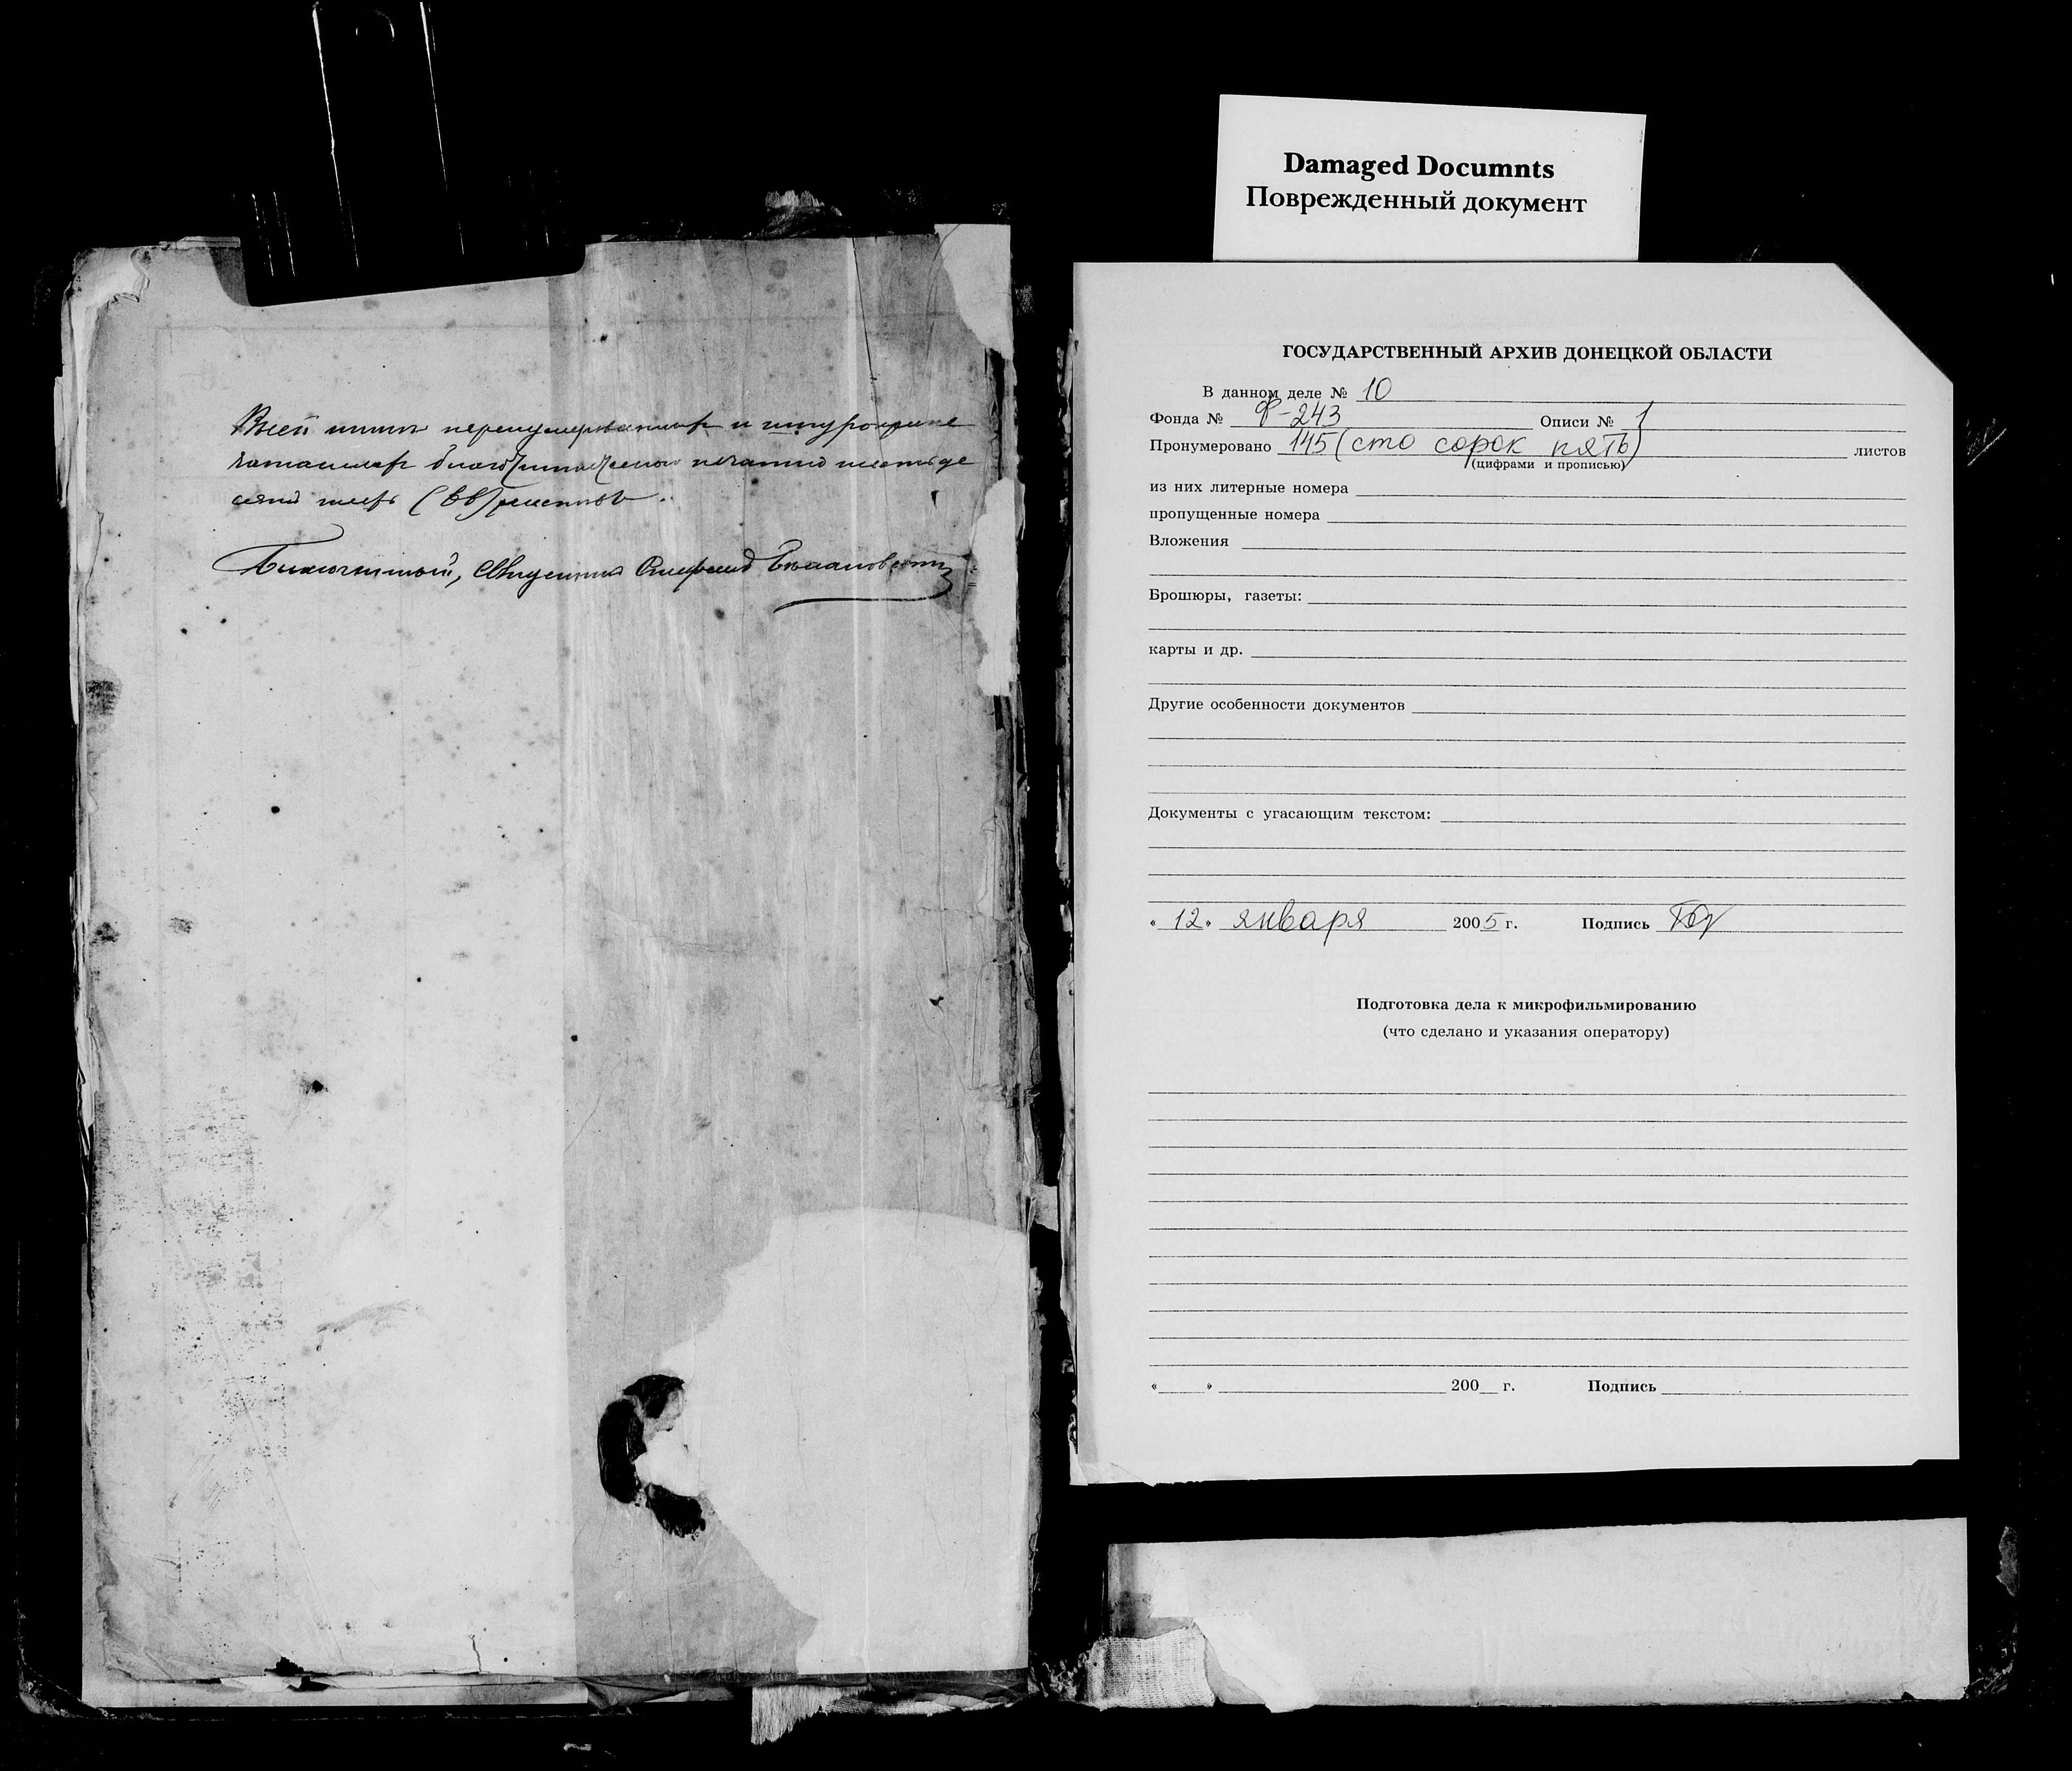 Damaged Documnts
Поврежденный документ
и
благочиннической печатью шестьде
сятъ (66)
Благочинный, Священник
ГОСУДАРСТВЕННЫЙ АРХИВ ДОНЕЦКОЙ ОБЛАСТИ
В данном деле № 10
Фонда № Ф-243 Описи № 1
Пронумеровано 145 (сто сорок пять) листов
(цифрами и прописью)
из них литерные номера
пропущенные номера
Вложения
Брошюры, газеты:
карты и др.
Другие особенности документов
Документы с угасающим текстом:
« 12 » января 2005 г. Подпись
Подготовка дела к микрофильмированию
(что сделано и указания оператору)
« » 200 г. Подпись